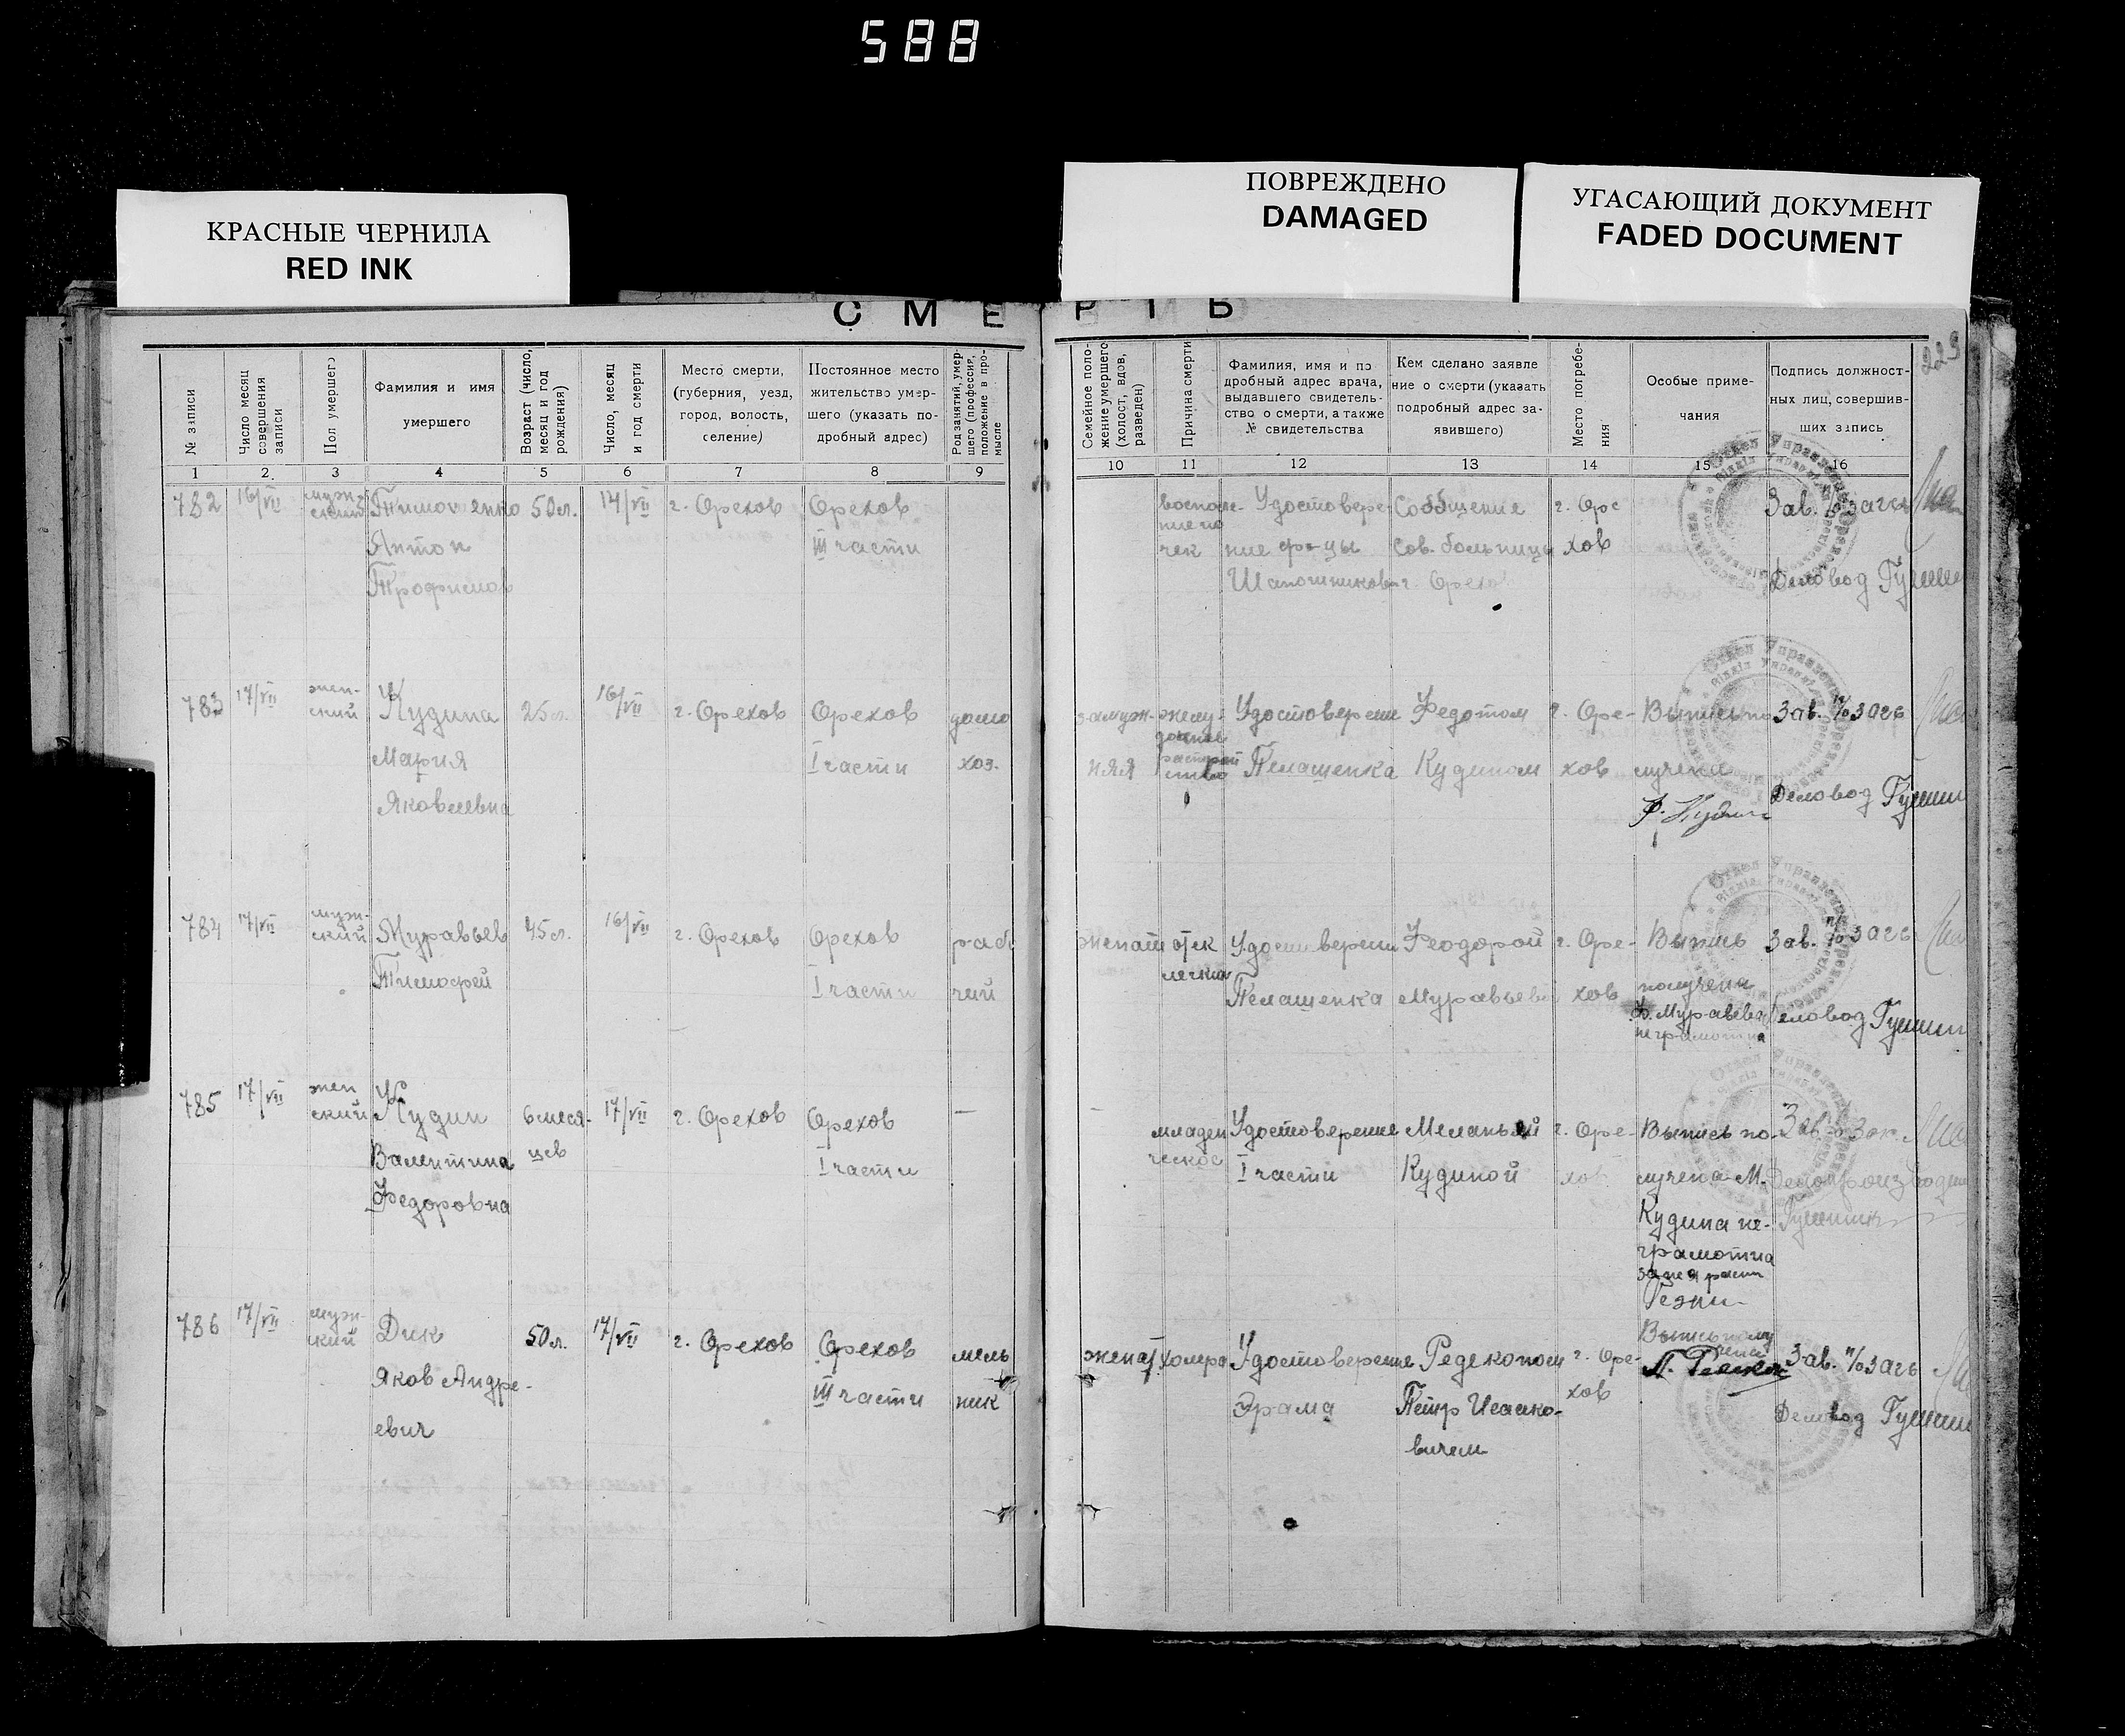 588
КРАСНЫЕ ЧЕРНИЛА
RED INK
ПОВРЕЖДЕНО
DAMAGED
УГАСАЮЩИЙ ДОКУМЕНТ
FADED DOCUMENT
СМЕРТЬ
223
№ записи
Число месяц совершения записи
Пол умершего
Фамилия и имя
умершего
Возраст (число, месяц и год рождения)
Число, месяц и год смерти
Место смерти,
(губерния, уезд,
город, волость,
селение)
Постоянное место
жительство умер-
шего (указать по-
дробный адрес)
Род занятий, умер-
шего (профессия,
положение в про-
мысле
Семейное поло-
жение умершего
(холост, вдов,
разведен)
Причина смерти
Фамилия, имя и по
дробный адрес врача,
выдавшего свидетель-
ство о смерти, а также
№ свидетельства
Кем сделано заявле
ние о смерти (указать
подробный адрес за-
явившего)
Место погребе-
ния
Особые приме-
чания
Подпись должност-
ных лиц, совершив-
ших запись
1 2. 3 4 5 6 7 8 9
10 11 12 13 14 15 16
782 16/VII муж-
ский
Тимовенко
Антон
Трофимов
50 л. 14/VII г. Орехов Орехов
III части
воспале-
ние по
чек
Удостовере-
ние ф-цы
Шапошникова
Сообщение
Сов. больницы
г. Орехов
г. Оре
хов
Зав. п/о загс
Деловод
783 17/VII жен-
ский
Кудина
Мария
Яковлевна
25 л. 16/VII г. Орехов Орехов
I части
домо
хоз.
замуж-
няя
желу-
дочное
Удостоверение
Пелащенка
Федотом
Кудином
г. Оре-
хов
Выпись по
лучена
Зав. п/о загс
Деловод
784 17/VII муж-
ский
Муравьев
Тимофей
45 л. 16/VII г. Орехов Орехов
I части
рабо
чий
женат отек
легких
Удостоверении
Пелащенка
Феодорой
Муравьевой
г. Оре-
хов
Выпись
получена
Ф. Муравьева
неграмотна
Зав. п/о загс
Деловод
785 17/VII жен
ский
Кудин
Валентина
Федоровна
6 меся-
цев
17/VII г. Орехов Орехов
I части
—
–
младен
ческое
Удостоверение
I части
Меланьей
Кудиной
г. Оре-
хов
Выпись по-
лучена М.
Кудина не-
грамотна
за нее расп
Зав. п/о
Делопроизводит
786 17/VII муж-
ский
Дик
Яков Андре-
евич
50 л. 17/VII г. Орехов Орехов
III части
мель
ник
женат холера
Удостоверение
Эрама
Редекопом
Петр Исаако-
вичем
г. Оре-
хов
Выпись полу
чена
Зав. п/о загс
Деловод